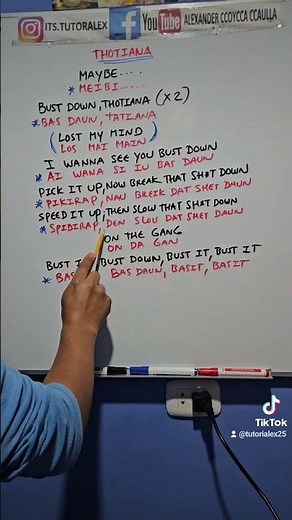 ITS.TUTORALEX
YouTube
ALEXANDER CCOYCCA CCAULLA
THOTIANA
MAYBE....
*MEIBI....
BUST DOWN, THOTIANA (x2)
*BAS DAUN, TATIANA
(LOST MY MIND
LOS MAI MAIN)
I WANNA SEE YOU BUST DOWN
*AI WANA SI IU BAS DAUN
PICK IT UP, NOW BREAK THAT SHOT DOWN
*PIKIRAP, NAU BREIK DAT SHET DAUN
SPEED IT UP, THEN SLOW THAT SHOT DOWN
*SPIDIRAP, DEN SLOU DAT SHET DAUN
ON THE GANG
ON DA GAN
BUST BUST DOWN, BUST IT, BUST IT
*BAS BAS DAUN, BASIT, BASIT
TikTok
@tutorialex25